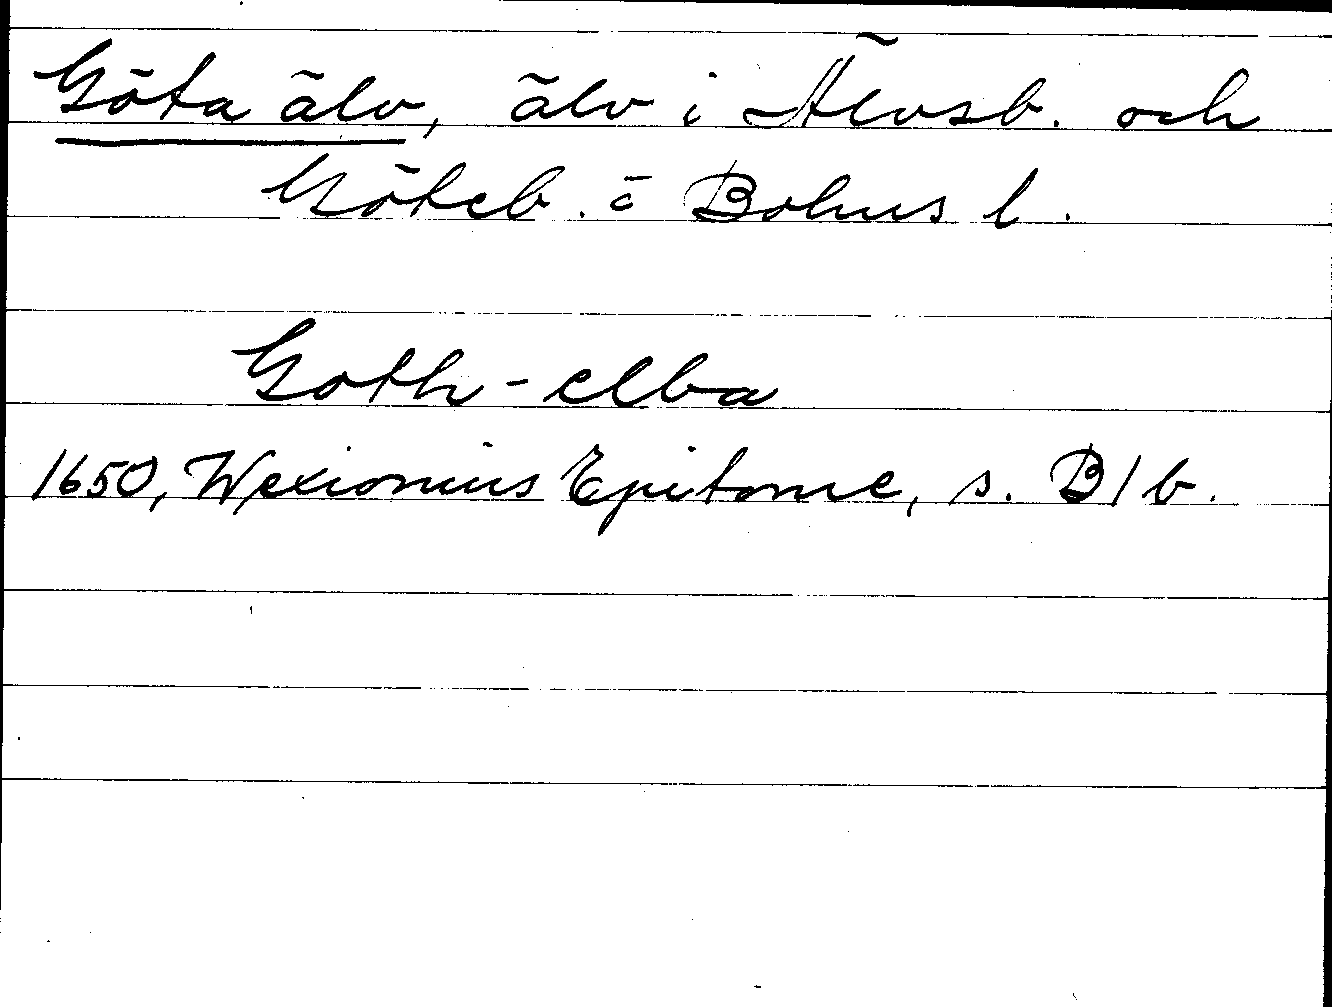 Göta älv, älv i Älvsb. och
Göteb. o Bohus l.
Goth-elba
1650, Wexionius Epitome, s. B1b.